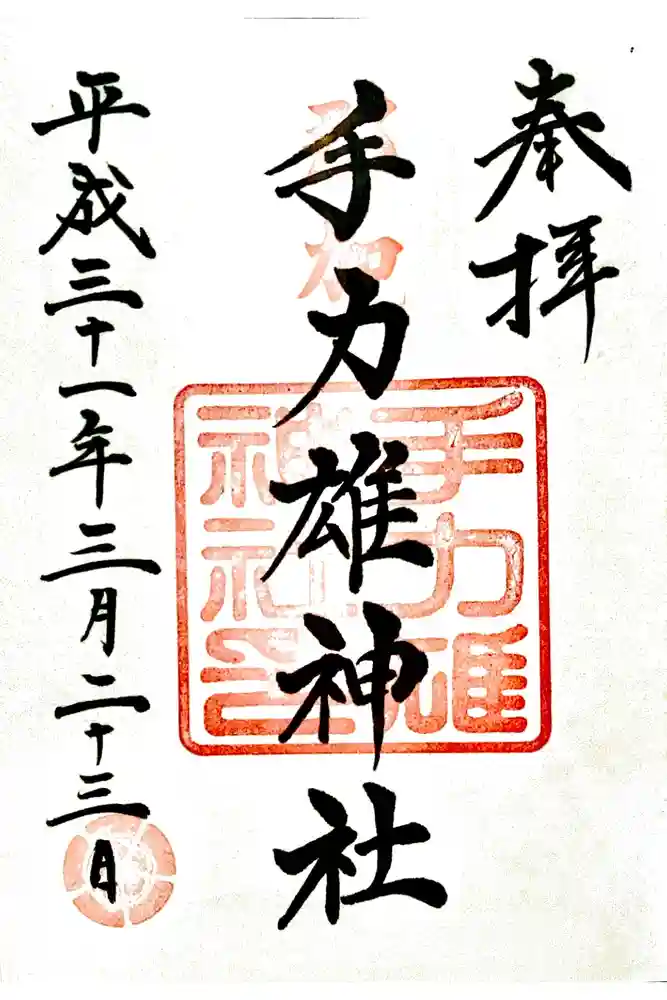 奉拝
手力雄神社
手力雄
神社之
平成三十一年三月二十三日